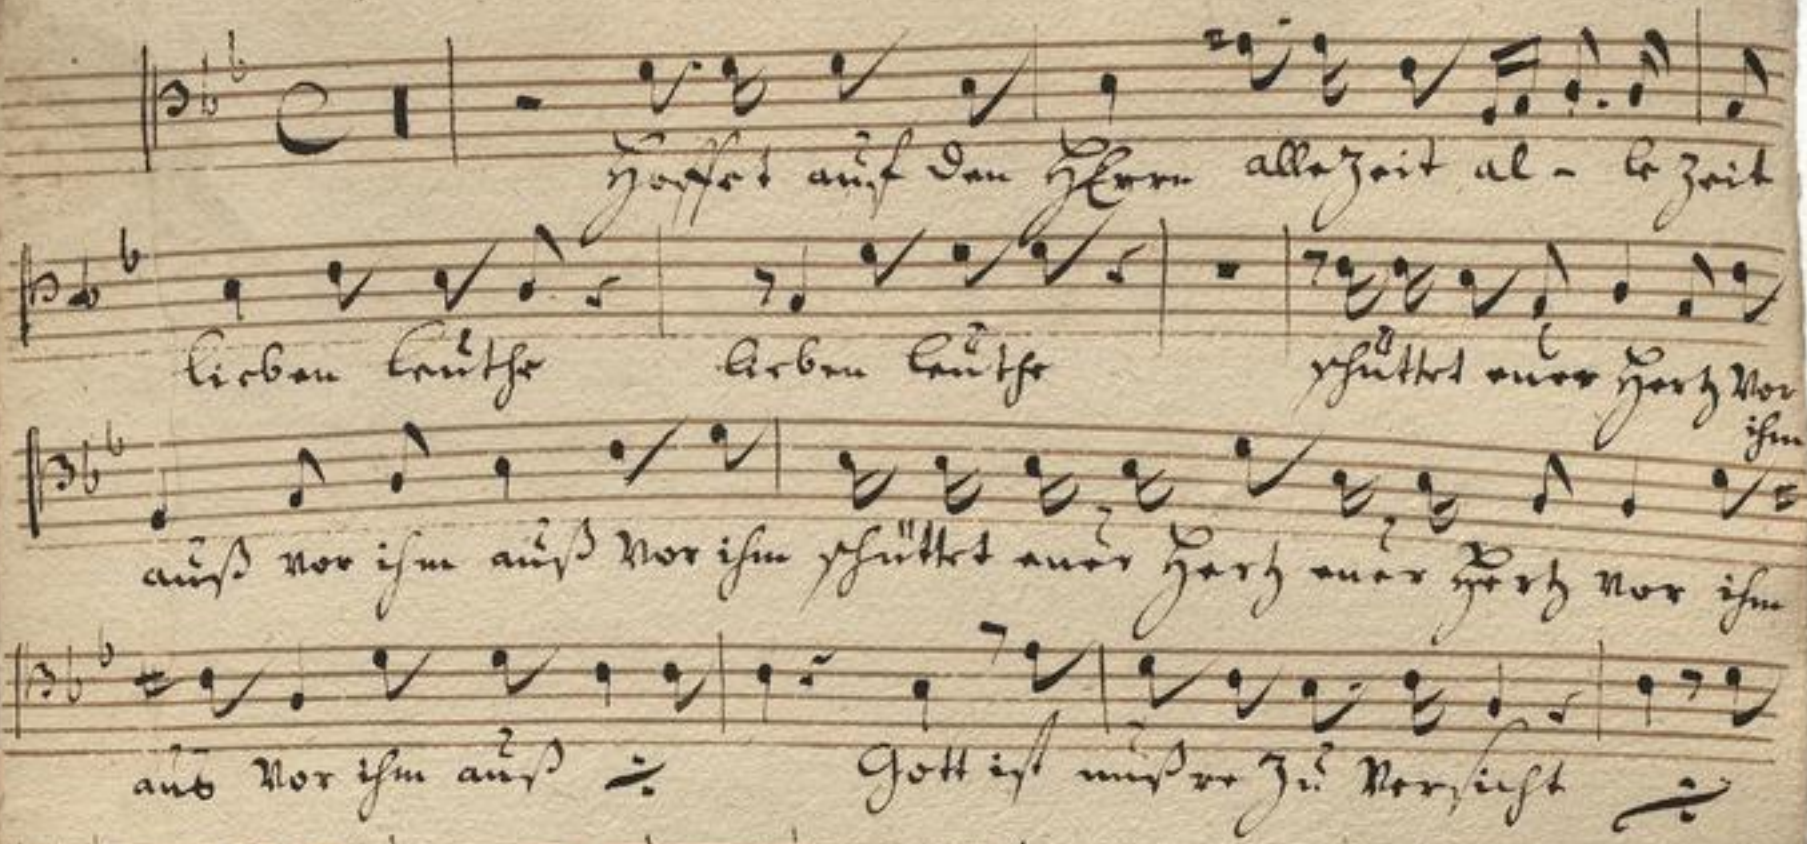 Hoffet auf den HErrn allezeit al - le zeit
lieben leuthe lieben leuthe schüttet euer Hertz vor
ihm
auß vor ihm auß vor ihm schüttet euer Hertz euer Hertz vor ihm
aus vor ihm auß Gott ist unßre zu versicht